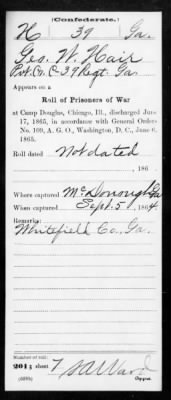 (Confederate.)
H 39 Ga.
Geo. W. Hair
Pvt. Co. C 39 Regt. Ga.
Appears on a
Roll of Prisoners of War
at Camp Douglas, Chicago, Ill., discharged June
17, 1865, in accordance with General Orders
No. 109, A. G. O., Washington, D. C., June 6,
1865.
Roll dated
Not dated
, 186
Where captured McDonough Ga
When captured Sept. 5, 1864
Remarks:
Whitefield Co., Ga.
Number of roll:
204; sheet 7
(639b) Copyist.